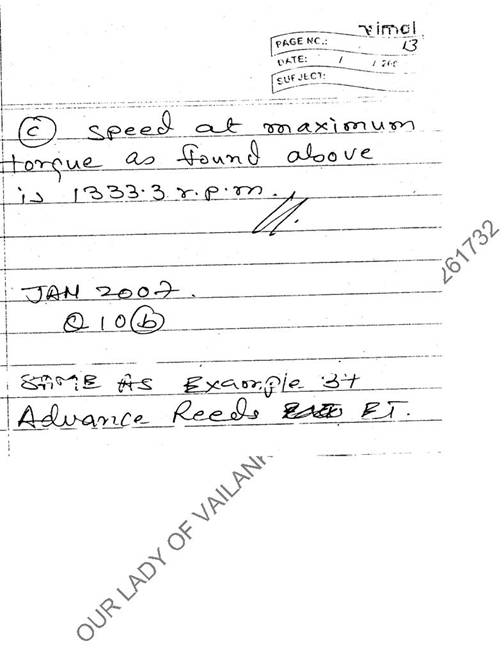 vimal
PAGE NC.: 13
DATE: / / 200
SUBJECT:
(c) speed at maximum
torque as found above
is 1333.3 r.p.m.
JAN 2007.
Q 10 (b)
SAME AS Example 37
Advance Reeds ET.
261732
OUR LADY OF VAILAN